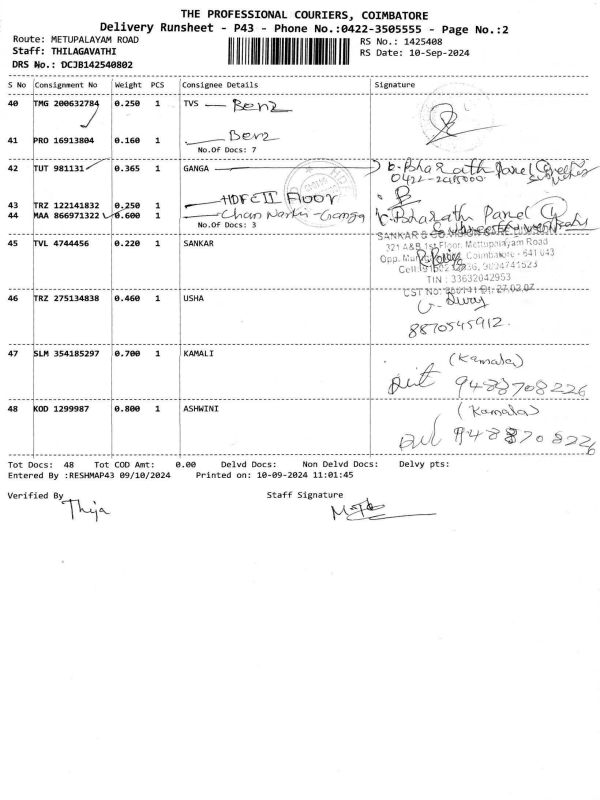 THE PROFESSIONAL COURIERS, COIMBATORE
Delivery Runsheet - P43 - Phone No.:0422-3505555 - Page No.:2
Route: METUPALAYAM ROAD RS No.: 1425408
Staff: THILAGAVATHI RS Date: 10-Sep-2024
DRS No.: DCJB142540802
S No Consignment No Weight PCS Consignee Details Signature
40 TMG 200632784 0.250 1 TVS Benz
41 PRO 16913804 0.160 1 Benz
No.Of Docs: 7
42 TUT 981131 0.365 1 GANGA K. Bharath Panel
0422-
43 TRZ 122141832 0.250 1 HDFC II Floor
44 MAA 866971322 0.600 1 Ganga K. Bharath Panel
No.Of Docs: 3
45 TVL 4744456 0.220 1 SANKAR
321 A&B 1st Floor, Mettupalayam Road
Coimbatore - 641 043
TIN : 33632042953
46 TRZ 275134838 0.460 1 USHA
8870545912.
47 SLM 354185297 0.700 1 KAMALI (Kamala)
9488708226
48 KOD 1299987 0.800 1 ASHWINI (Kamala)
9488708226
Tot Docs: 48 Tot COD Amt: 0.00 Delvd Docs: Non Delvd Docs: Delvy pts:
Entered By :RESHMAP43 09/10/2024 Printed on: 10-09-2024 11:01:45
Verified By Staff Signature
Thija